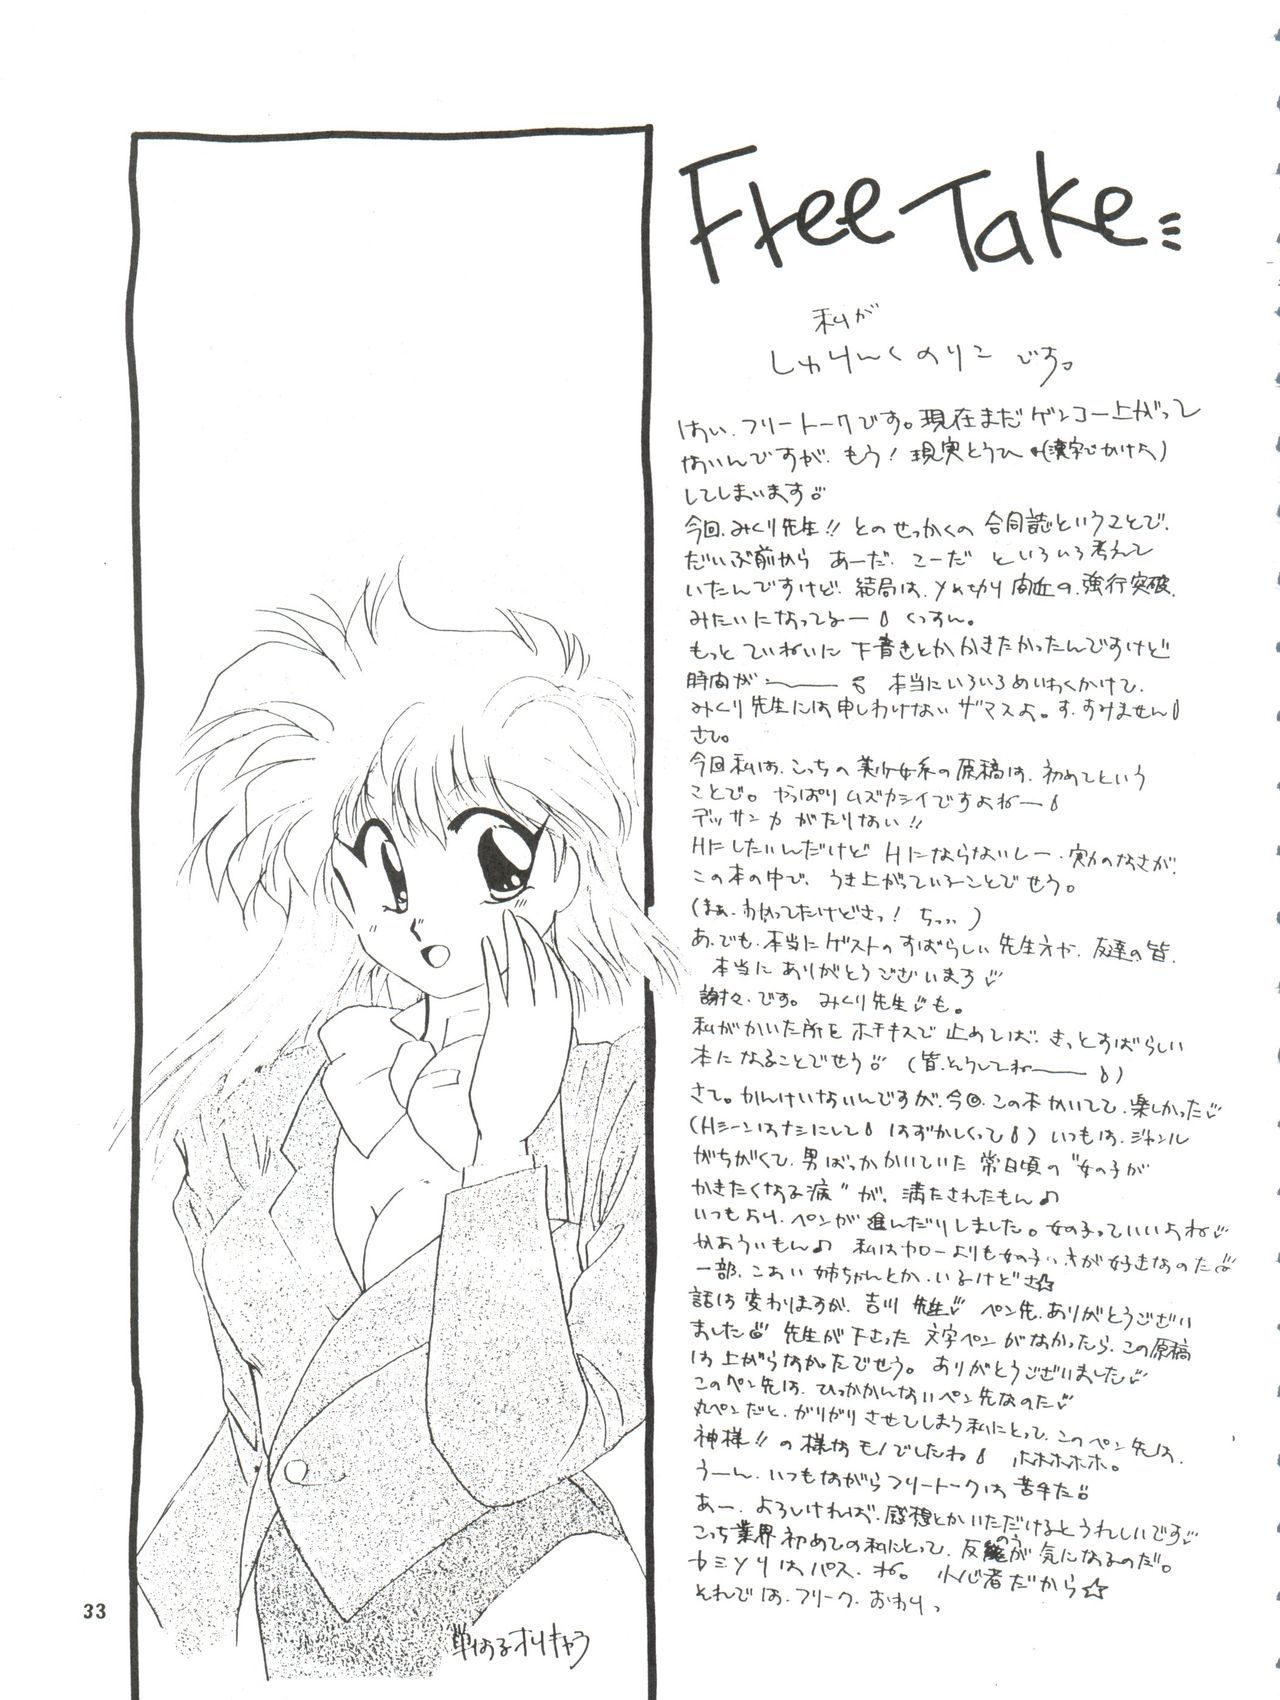 Free Take
私が
しゅりんくのりこ です。
はい、フリートークです。現在まだゲンコー上がって
ないんですが、もう！現実とうひ (漢字でかけよ)
してしまいます
今回、みくり先生!! とのせっかくの 合同誌ということで、
だいぶ前から あーだ、こーだ といろいろ考えて
いたんですけど、結局は、〆め切り間近の、強行突破、
みたいになってるー くっすん。
もっと ていねいに 下書きとかかきたかったんですけど
時間がー 本当にいろいろめいわくかけて、
みくり先生には申しわけないザマスよ。す、すみません
さて。
今回私は、こっちの美少女系の原稿は、初めてという
ことで。やっぱりムズカシイですよねー
デッサン力がたりない!!
Hにしたいんだけど Hにならないしー、実力のなさが、
この本の中で、うき上がっていることでせう。
(まぁ、わかってたけどさっ！ ちっ)
あ、でも、本当にゲストのすばらしい先生方や、友達の皆、
本当にありがとうございます
謝々、です。みくり先生も。
私がかいた所をホチキスで止めてしまえば、きっとすばらしい
本になることでせう (皆、そうしてねー)
さて。かんけいないんですが、今回、この本かいてて、楽しかった
(Hシーンはナシにして はずかしくって) いつもは、ジャンル
がちがくて、男ばっかかいていた 常日頃の "女の子が
かきたくなる病" が、満たされたもん♪
いつもより、ペンが進んだりしました。女の子っていいよね
かあういもん♪ 私はヤローよりも女の子の方が好きなのだ
一部、こあい姉ちゃんとか、いるけどさ☆
話は変わりますが、吉川先生 ペン先、ありがとうござい
ました 先生が下さった 文字ペンがなかったら、この原稿
は上がらなかったでせう。ありがとうございました
このペン先は、ひっかかんないペン先なのだ
丸ペンだと、がりがりさせてしまう私にとって、このペン先は、
神様!! の様なモノでしたね ホホホホホ。
うーん、いつもながらフリートークは苦手だ
あー、よろしければ、感想とかいただけるとうれしいです
こっち業界初めての私にとって、反能のうが気になるのだ。
カミソリはパス、ね。小心者だから☆
それでは、フリーク、おわりっ
単なるオリキャラ
33